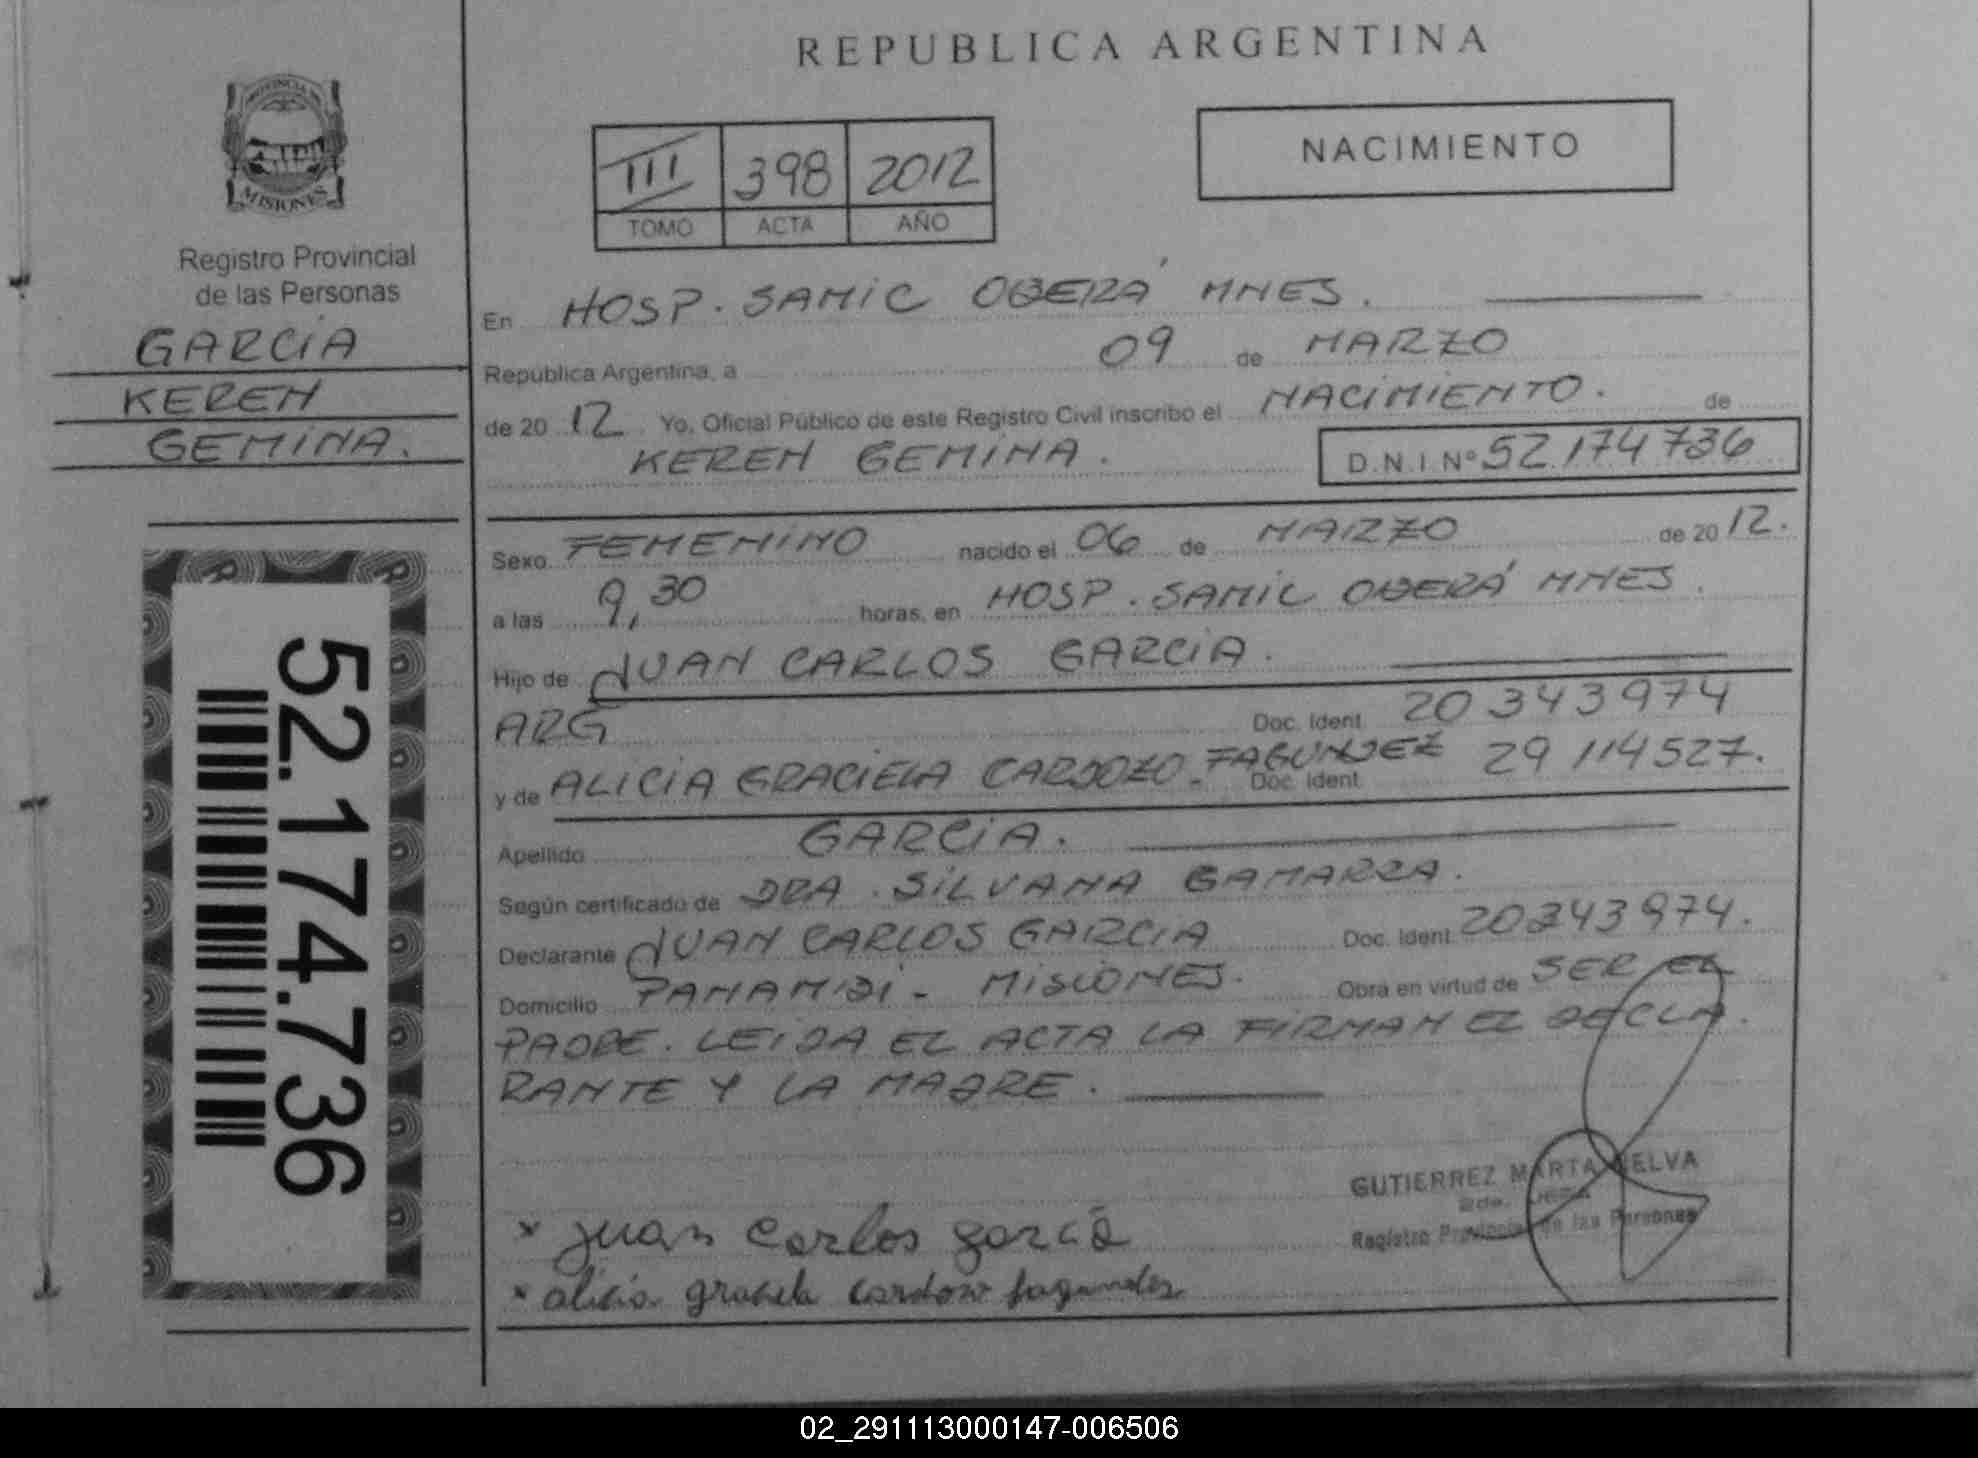 REPUBLICA ARGENTINA
PROVINCIA DE
MISIONES
Registro Provincial
de las Personas
GARCIA
KEREN
GEMINA.
52.174.736
III 398 2012
TOMO ACTA AÑO
NACIMIENTO
En HOSP. SAMIC OBERÁ MNES.
Republica Argentina, a 09 de MARZO
de 20 12 Yo, Oficial Público de este Registro Civil inscribo el NACIMIENTO. de
KEREN GEMINA. D.N.I. Nº 52.174 736
Sexo FEMENINO nacido el 06 de MARZO de 20 12.
a las 9,30 horas, en HOSP. SAMIC OBERÁ MNES.
Hijo de JUAN CARLOS GARCIA.
ARG Doc. Ident. 20 343 974
y de ALICIA GRACIELA CARDOZO FAGUNDEZ Doc. Ident. 29 114527.
Apellido GARCIA.
Según certificado de DRA. SILVANA GAMARRA.
Declarante JUAN CARLOS GARCIA Doc. Ident. 20343974.
Domicilio PANAMBI - MISIONES. Obra en virtud de SER EL
PADRE. LEIDA EL ACTA LA FIRMAN EL DECLA
RANTE Y LA MADRE.
GUTIERREZ MARTA NELVA
Registro Provincial de las Personas
x juan carlos garcia
x alicia graciela cardozo fagundez
02_291113000147-006506